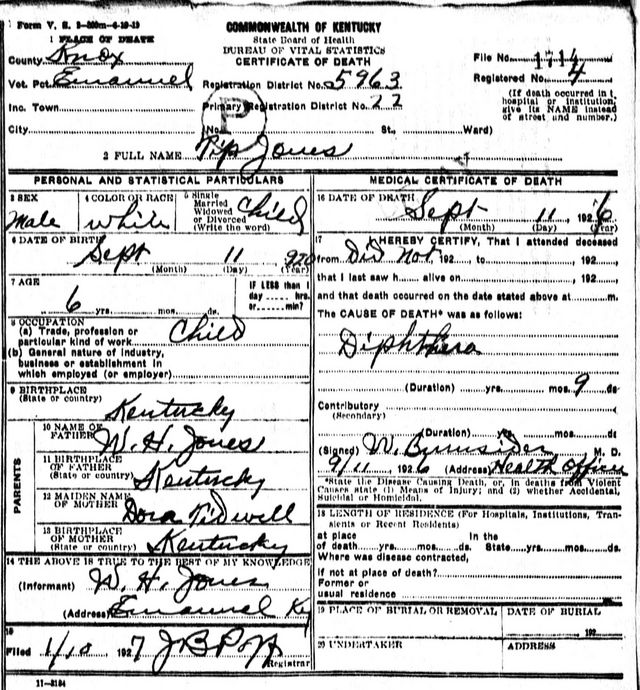 Form V. S. 3-500m-6-19-19
COMMONWEALTH OF KENTUCKY
State Board of Health
BUREAU OF VITAL STATISTICS
CERTIFICATE OF DEATH
1 PLACE OF DEATH
County Knox
File No. 1714
Vot. Pct. Emanuel
Registration District No. 5963
Registered No. 4
Inc. Town
Primary Registration District No. 22
(If death occurred in
hospital or institution,
give its NAME instead
of street and number.)
City
(No. St., Ward)
P
2 FULL NAME Pip Jones
PERSONAL AND STATISTICAL PARTICULARS
3 SEX
Male
4 COLOR OR RACE
white
5 Single
Married
Widowed
or Divorced
(Write the word)
Child
6 DATE OF BIRTH
Sept 11 920
(Month) (Day) (Year)
7 AGE
6 yrs. mos. ds.
IF LESS than 1
day hrs.
or min?
8 OCCUPATION
(a) Trade, profession or
particular kind of work Child
(b) General nature of industry,
business or establishment in
which employed (or employer)
9 BIRTHPLACE
(State or country)
Kentucky
PARENTS
10 NAME OF
FATHER W. H. Jones
11 BIRTHPLACE
OF FATHER
(State or country) Kentucky
12 MAIDEN NAME
OF MOTHER
Dora Tidwell
13 BIRTHPLACE
OF MOTHER
(State or country) Kentucky
14 THE ABOVE IS TRUE TO THE BEST OF MY KNOWLEDGE
(Informant) W. H. Jones
(Address) Emanuel Ky
15
Filed 1/10 1927
Registrar
11-3184
MEDICAL CERTIFICATE OF DEATH
16 DATE OF DEATH
Sept 11, 1926
(Month) (Day) (Year)
17 I HEREBY CERTIFY, That I attended deceased
from Did Not 192 to 192
that I last saw h alive on 192
and that death occurred on the date stated above at m.
The CAUSE OF DEATH* was as follows:
Diphthera
(Duration) yrs. mos. 9 ds.
Contributory
(Secondary)
(Duration) yrs. mos. ds.
(Signed) W. Burnsides M. D.
9/11 1926 (Address) Health Officer
*State the Disease Causing Death, or, in deaths from Violent
Causes state (1) Means of Injury; and (2) whether Accidental,
Suicidal or Homicidal.
18 LENGTH OF RESIDENCE (For Hospitals, Institutions, Tran-
sients or Recent Residents)
at place In the
of death yrs. mos. ds. State yrs. mos. ds.
Where was disease contracted,
if not at place of death?
Former or
usual residence
19 PLACE OF BURIAL OR REMOVAL
DATE OF BURIAL
192
20 UNDERTAKER
ADDRESS